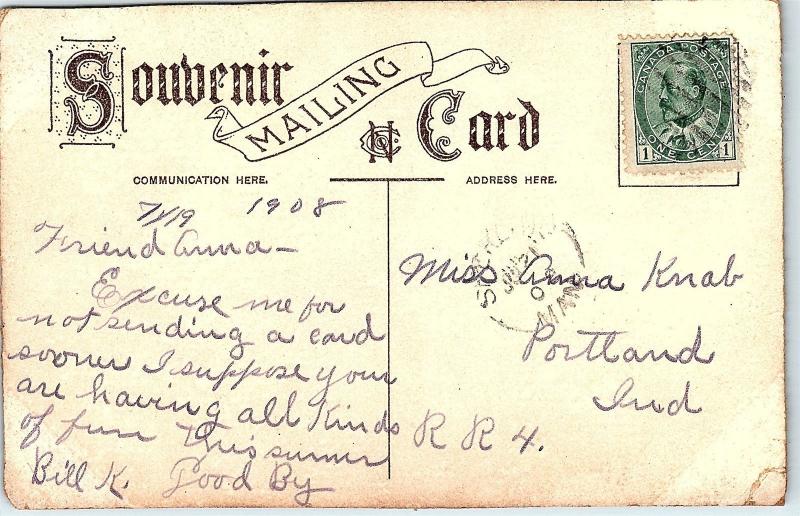 Souvenir
MAILING
Card
COMMUNICATION HERE.
ADDRESS HERE.
CANADA POSTAGE
1 ONE CENT 1
7/19 1908
Friend Anna—
Excuse me for
not sending a card
sooner I suppose your
are having all Kinds
of fun this sumer
Bill K. Good By
MAN
Miss Anna Knab
Portland
Ind
R R 4.